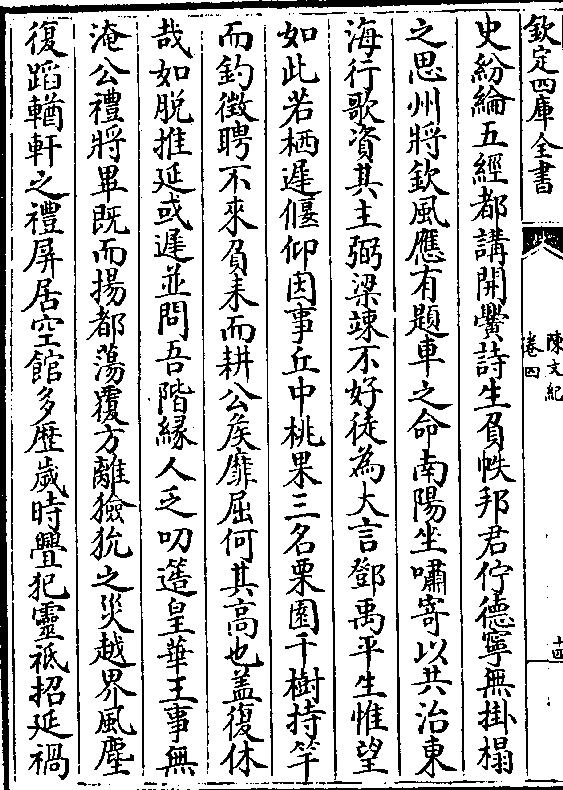 欽定四庫全書
陳文紀
卷四
十四
史紛綸五經都講開黌詩生負帙邦君佇德寧無掛榻
之思州將欽風應有題車之命南陽坐嘯寄以共治東
海行歌資其主弼梁竦不好徒為大言鄧禹平生惟望
如此若栖遲偃仰因事丘中桃果三名栗園千樹持竿
而釣徵聘不來負耒而耕公侯靡屈何其高也盖復休
哉如脫推延或遲並問吾階緣人乏叨簉皇華王事無
淹公禮將畢既而揚都蕩覆方離獫狁之災越界風塵
復蹈輶軒之禮屏居空館多歴歳時疊犯靈祗招延禍